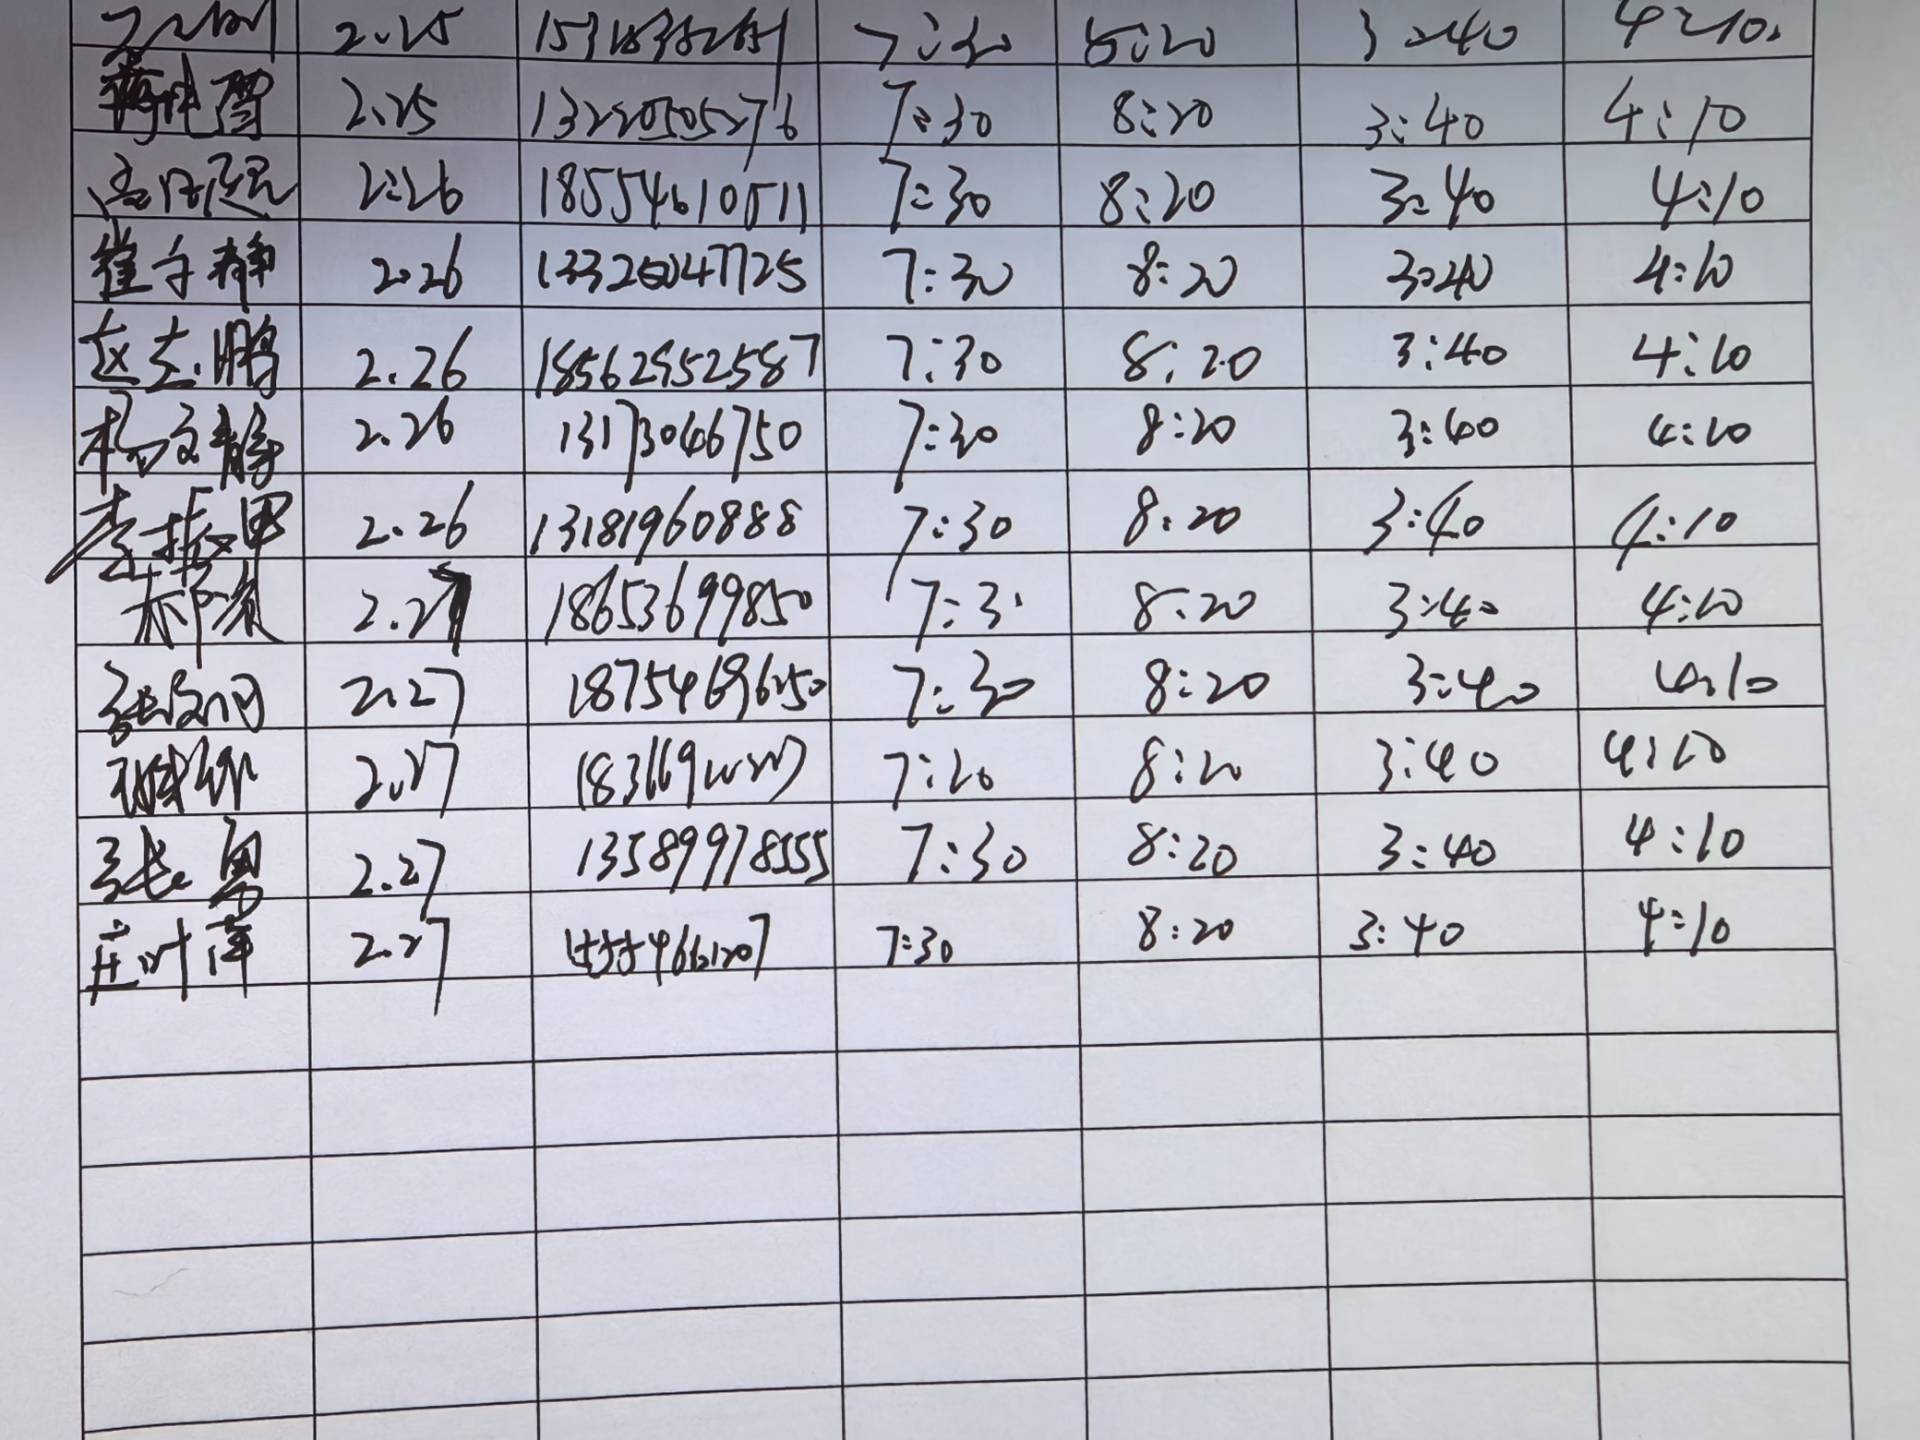 2.25 7:30 8:20 3:40 4:10.
2.25 13220505276 7:30 8:20 3:40 4:10
2.26 18554610511 7:30 8:20 3:40 4:10
崔子静 2.26 7:30 8:20 3:40 4:10
赵志鹏 2.26 18562952587 7:30 8:20 3:40 4:10
杨文静 2.26 13173046750 7:30 8:20 3:40 4:10
李振甲 2.26 13181960888 7:30 8:20 3:40 4:10
2.27 18653699850 7:3 8:20 3:40 4:10
2.27 18754696250 7:30 8:20 3:40 4:10
2.27 7:20 8:20 3:40 4:10
张勇 2.27 13589978555 7:30 8:20 3:40 4:10
庄叶萍 2.27 7:30 8:20 3:40 4:10